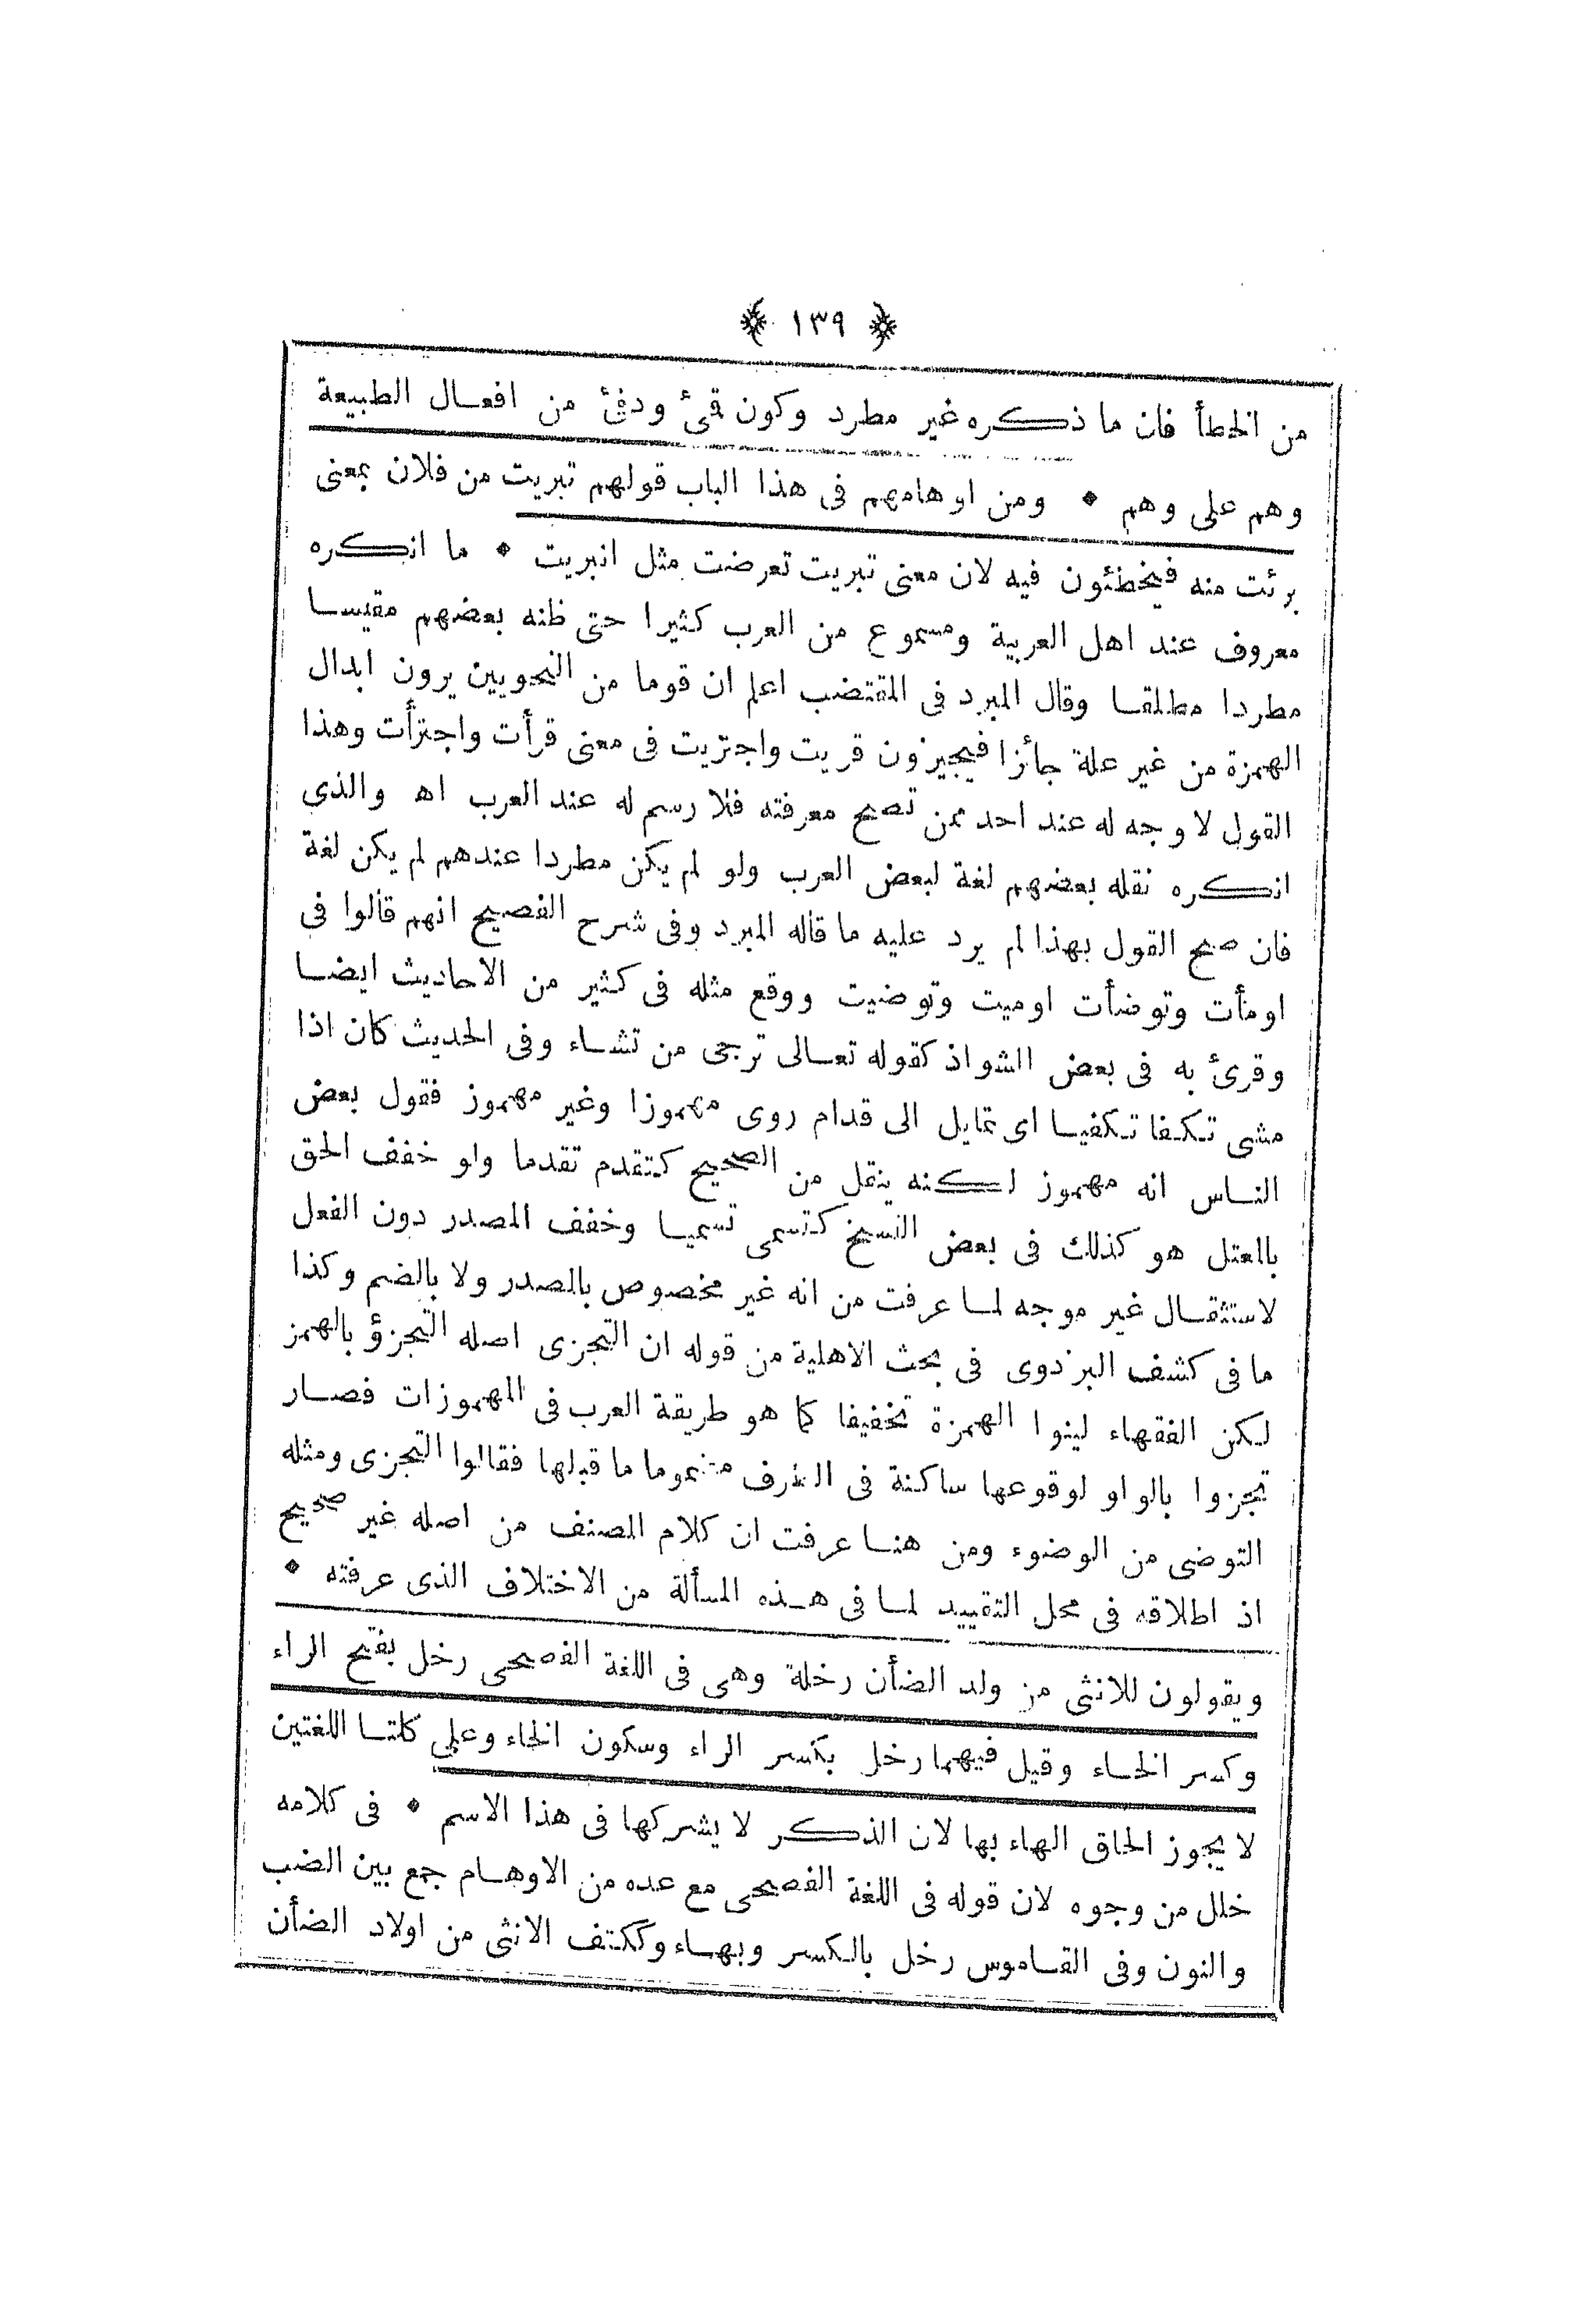 ﴿ ١٣٩ ﴾
من الخطأ فان ما ذكره غير مطرد وكون قمئ ودفئ من افعال الطبيعة
وهم على وهم * ومن اوهامهم فى هذا الباب قولهم تبريت من فلان بمعنى
برئت منه فيخطئون فيه لان معنى تبريت تعرضت مثل انبريت * ما انكره
معروف عند اهل العربية ومسموع من العرب كثيرا حتى ظنه بعضهم مقيسا
مطردا مطلقا وقال المبرد فى المقتضب اعلم ان قوما من النحويين يرون ابدال
الهمزة من غير علة جائزا فيجيزون قريت واجتزيت فى معنى قرأت واجتزأت وهذا
القول لا وجه له عند احد ممن تصح معرفته فلا رسم له عند العرب اه والذى
انكره نقله بعضهم لغة لبعض العرب ولو لم يكن مطردا عندهم لم يكن لغة
فان صح القول بهذا لم يرد عليه ما قاله المبرد وفى شرح الفصيح انهم قالوا فى
اومأت وتوضأت اوميت وتوضيت ووقع مثله فى كثير من الاحاديث ايضا
وقرئ به فى بعض الشواذ كقوله تعالى ترجى من تشاء وفى الحديث كان اذا
مشى تكفا تكفيا اى تمايل الى قدام روى مهموزا وغير مهموز فقول بعض
الناس انه مهموز لكنه ينقل من الصحيح كتقدم تقدما ولو خفف الحق
بالمعتل هو كذلك فى بعض النسخ كتسمى تسميا وخفف المصدر دون الفعل
لاستثقال غير موجه لما عرفت من انه غير مخصوص بالمصدر ولا بالضم وكذا
ما فى كشف البزدوى فى بحث الاهلية من قوله ان التجزى اصله التجزؤ بالهمز
لكن الفقهاء لينوا الهمزة تخفيفا كما هو طريقة العرب فى المهموزات فصار
تجزوا بالواو لوقوعها ساكنة فى الطرف مضموما ما قبلها فقالوا التجزى ومثله
التوضى من الوضوء ومن هنا عرفت ان كلام المصنف من اصله غير صحيح
اذ اطلاقه فى محل التقييد لما فى هذه المسألة من الاختلاف الذى عرفته *
ويقولون للانثى من ولد الضأن رخلة وهى فى اللغة الفصحى رخل بفتح الراء
وكسر الخاء وقيل فيهما رخل بكسر الراء وسكون الخاء وعلى كلتا اللغتين
لا يجوز الحاق الهاء بها لان الذكر لا يشركها فى هذا الاسم * فى كلامه
خلل من وجوه لان قوله فى اللغة الفصحى مع عده من الاوهام جمع بين الضب
والنون وفى القاموس رخل بالكسر وبهاء وككتف الانثى من اولاد الضأن